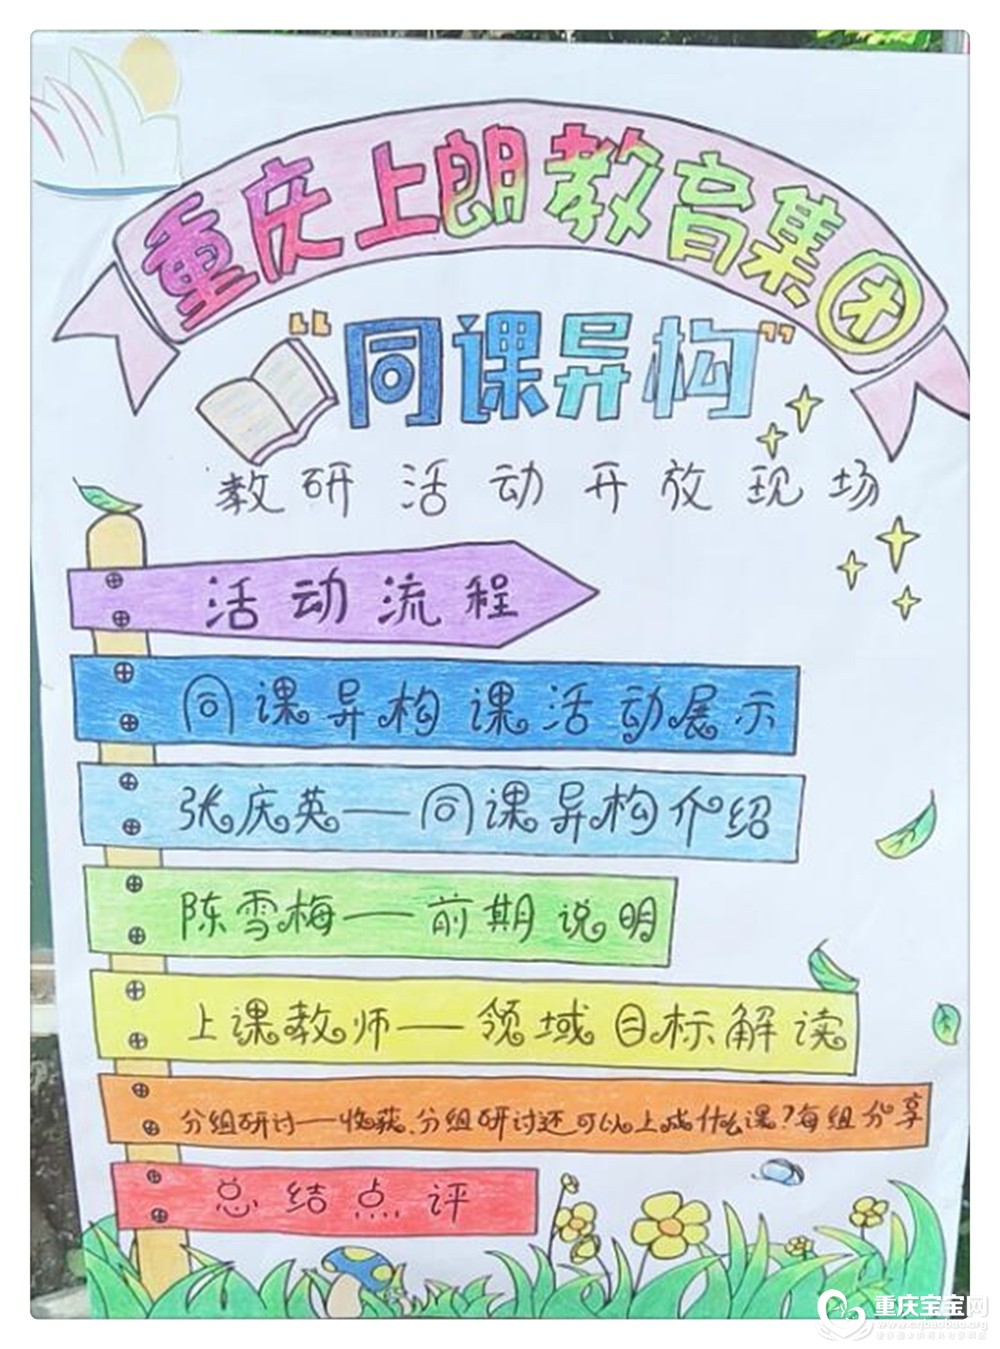 重庆上朗教育集团
“同课异构”
教研活动开放现场
活动流程
同课异构课活动展示
张庆英——同课异构介绍
陈雪梅——前期说明
上课教师——领域目标解读
分组研讨——收获、分组研讨还可以上成什么课?每组分享
总结点评
重庆宝宝网
www.cqbaobao.org